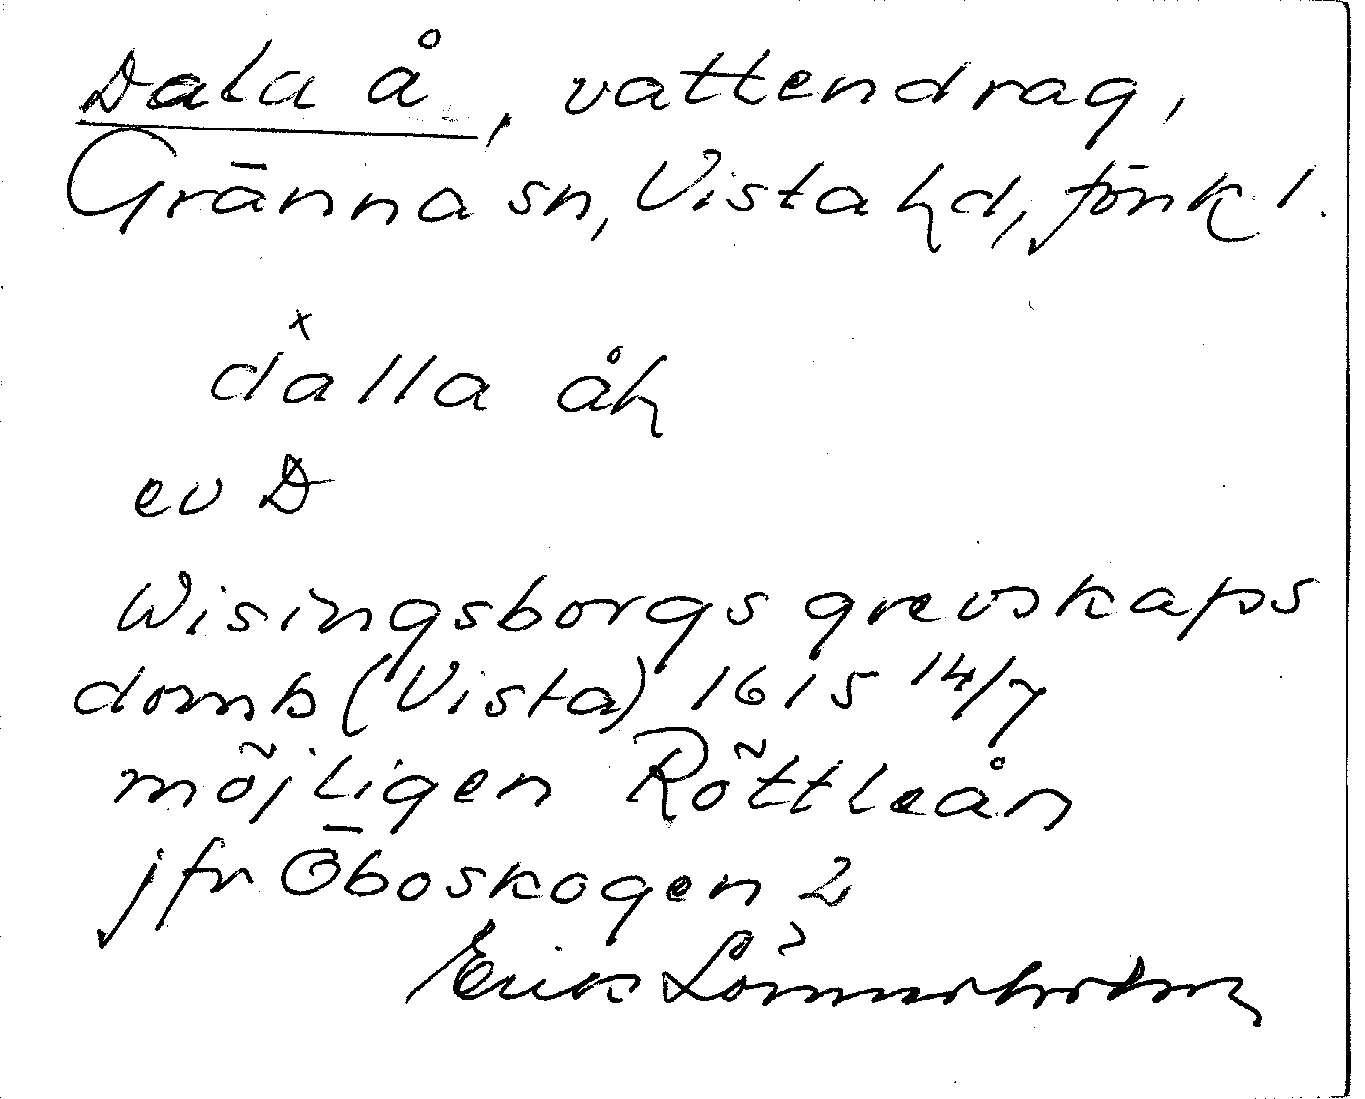 Dala å, vattendrag,
Gränna sn, Vista hd, Jönk l.
x
dalla åh
ev D
Wisingsborgs grevskaps
domb (Vista) 1615 14/7
möjligen Röttleån
jfr Öboskogen 2
Erik Lönnerholm